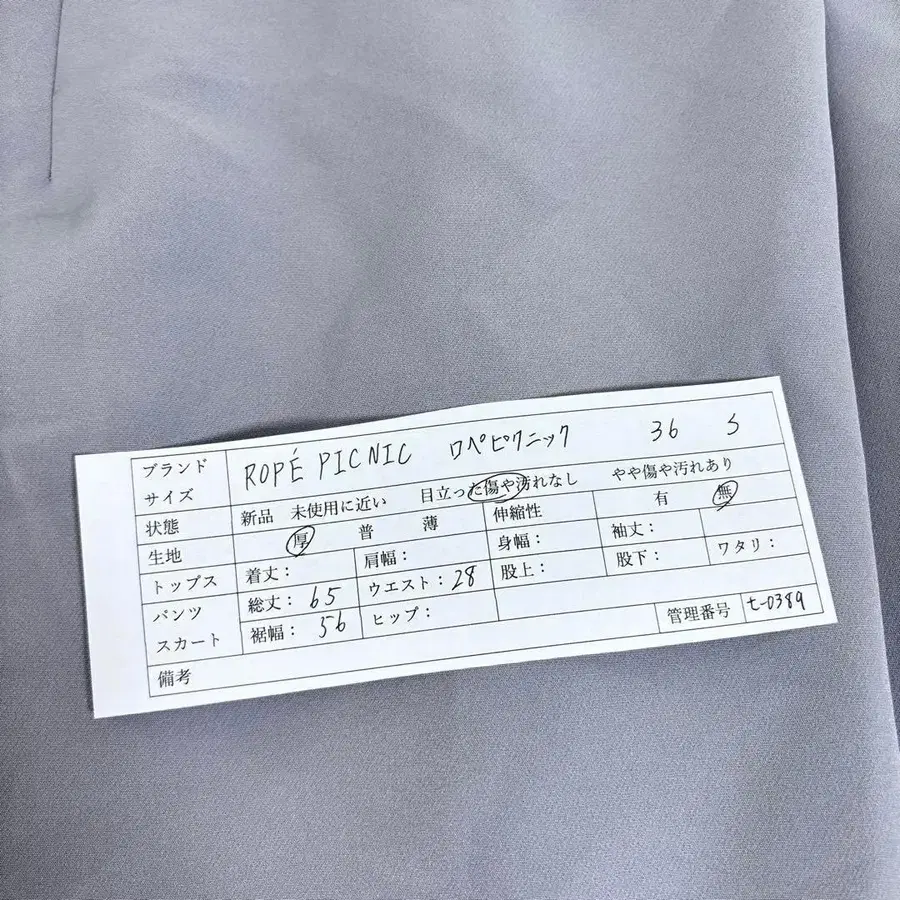 ブランド ROPÉ PICNIC ロペピクニック 36 S
サイズ
状態 新品 未使用に近い 目立った傷や汚れなし やや傷や汚れあり
生地 厚 普 薄 伸縮性 有 無
トップス 着丈： 肩幅： 身幅： 袖丈：
パンツ 総丈：65 ウエスト：28 股上： 股下： ワタリ：
スカート 裾幅：56 ヒップ：
管理番号 t-0389
備考